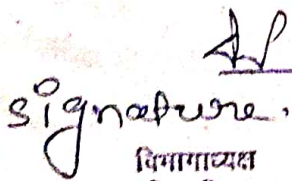 signature.
विभागाध्यक्ष